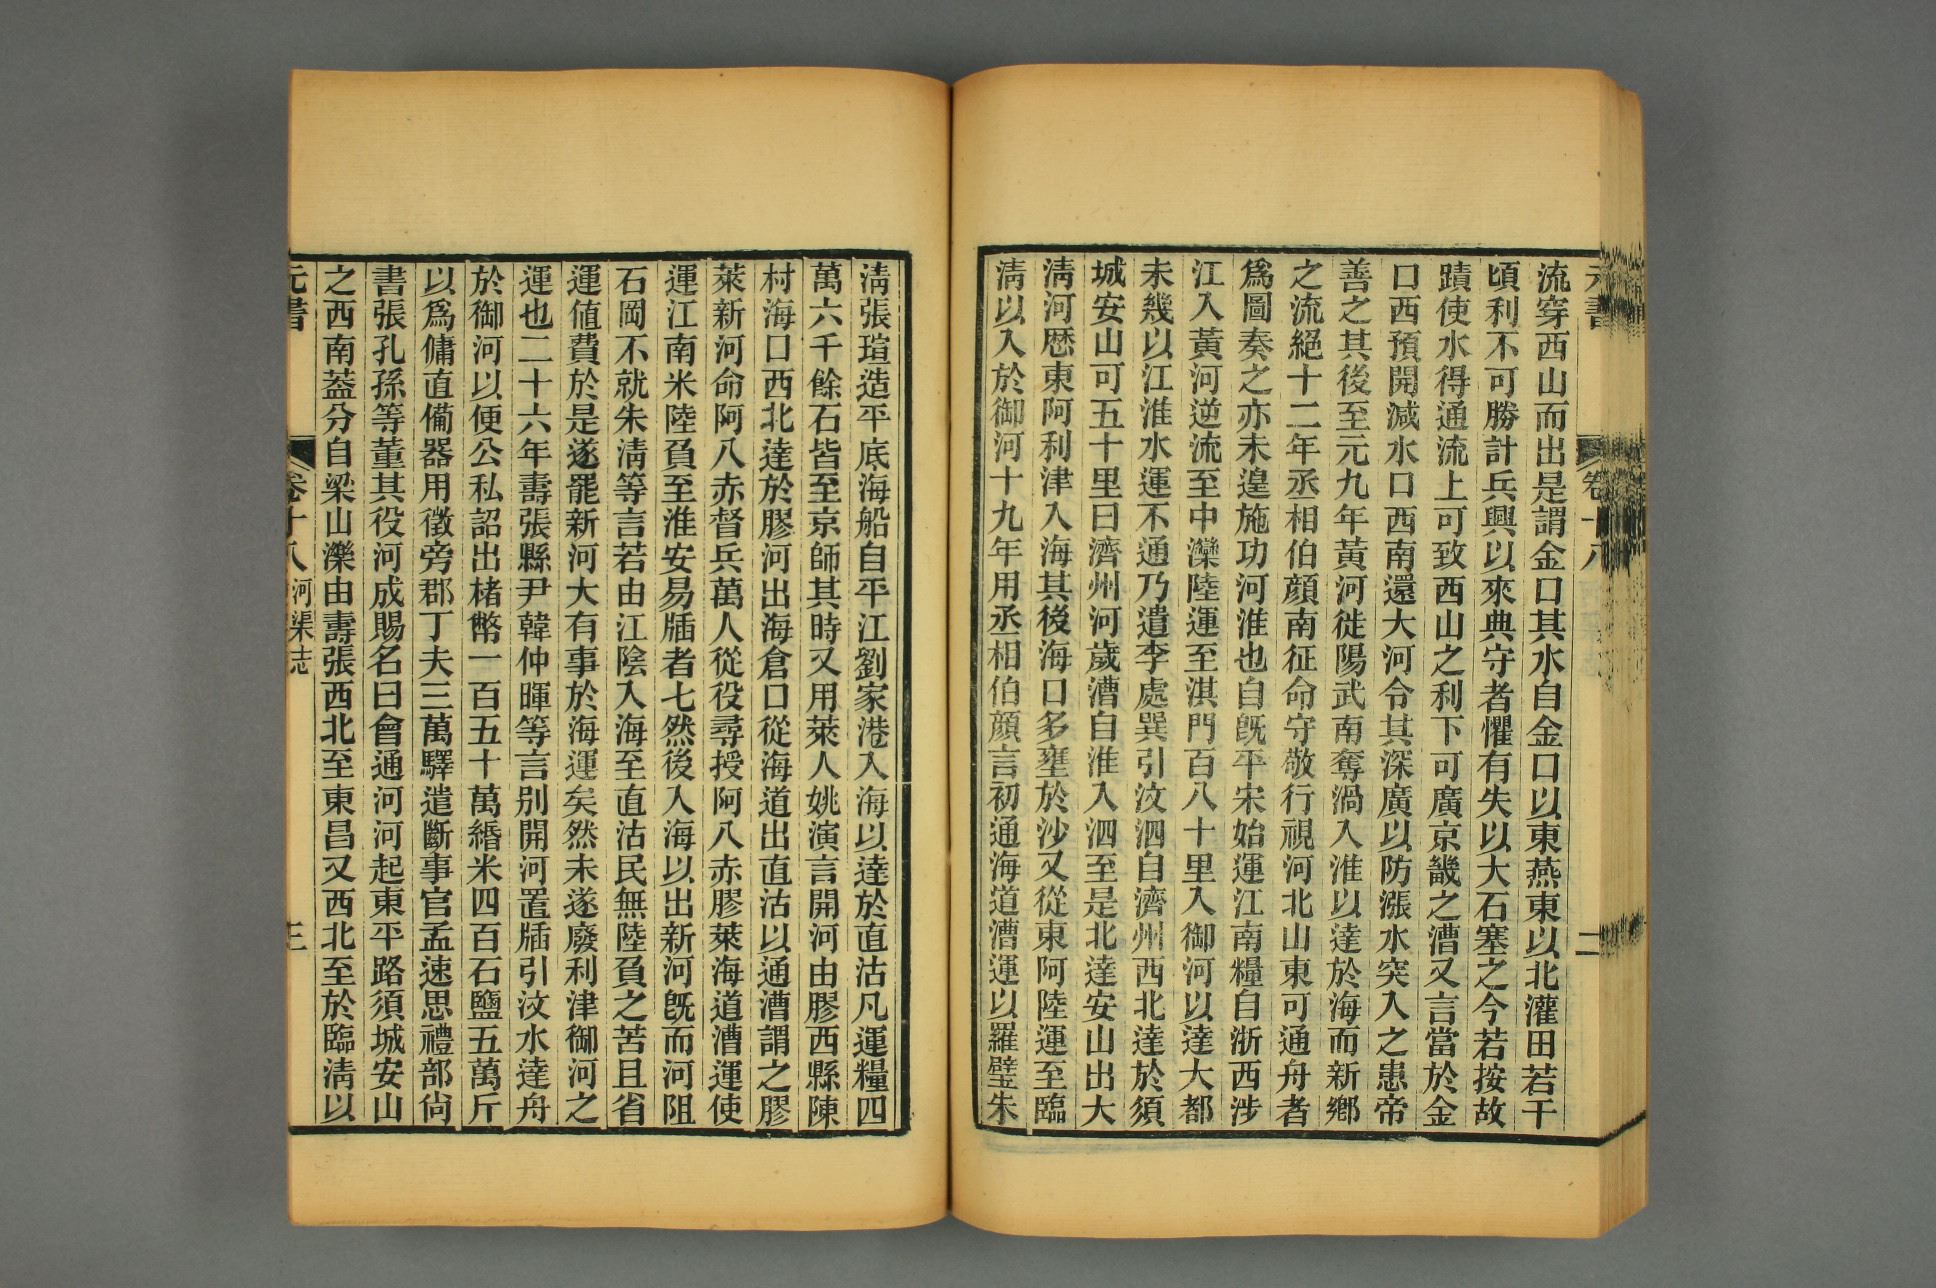 元書
卷十八
二
流穿西山而出是謂金口其水自金口以東燕東以北灌田若干
頃利不可勝計兵興以來典守者懼有失以大石塞之今若按故
蹟使水得通流上可致西山之利下可廣京畿之漕又言當於金
口西預開減水口西南還大河令其深廣以防漲水突入之患帝
善之其後至元九年黃河徙陽武南奪渦入淮以達於海而新鄉
之流絕十二年丞相伯顏南征命守敬行視河北山東可通舟者
爲圖奏之亦未遑施功河淮也自旣平宋始運江南糧自浙西涉
江入黃河逆流至中灤陸運至淇門百八十里入御河以達大都
未幾以江淮水運不通乃遣李處巽引汶泗自濟州西北達於須
城安山可五十里曰濟州河歲漕自淮入泗至是北達安山出大
淸河歷東阿利津入海其後海口多壅於沙又從東阿陸運至臨
淸以入於御河十九年用丞相伯顏言初通海道漕運以羅璧朱
淸張瑄造平底海船自平江劉家港入海以達於直沽凡運糧四
萬六千餘石皆至京師其時又用萊人姚演言開河由膠西縣陳
村海口西北達於膠河出海倉口從海道出直沽以通漕謂之膠
萊新河命阿八赤督兵萬人從役尋授阿八赤膠萊海道漕運使
運江南米陸負至淮安易牐者七然後入海以出新河旣而河阻
石岡不就朱淸等言若由江陰入海至直沽民無陸負之苦且省
運値費於是遂罷新河大有事於海運矣然未遂廢利津御河之
運也二十六年壽張縣尹韓仲暉等言別開河置牐引汶水達舟
於御河以便公私詔出楮幣一百五十萬緡米四百石鹽五萬斤
以爲傭直備器用徵旁郡丁夫三萬驛遣斷事官孟速思禮部尙
書張孔孫等董其役河成賜名曰會通河河起東平路須城安山
之西南葢分自梁山濼由壽張西北至東昌又西北至於臨淸以
元書
卷十八
河渠志
三